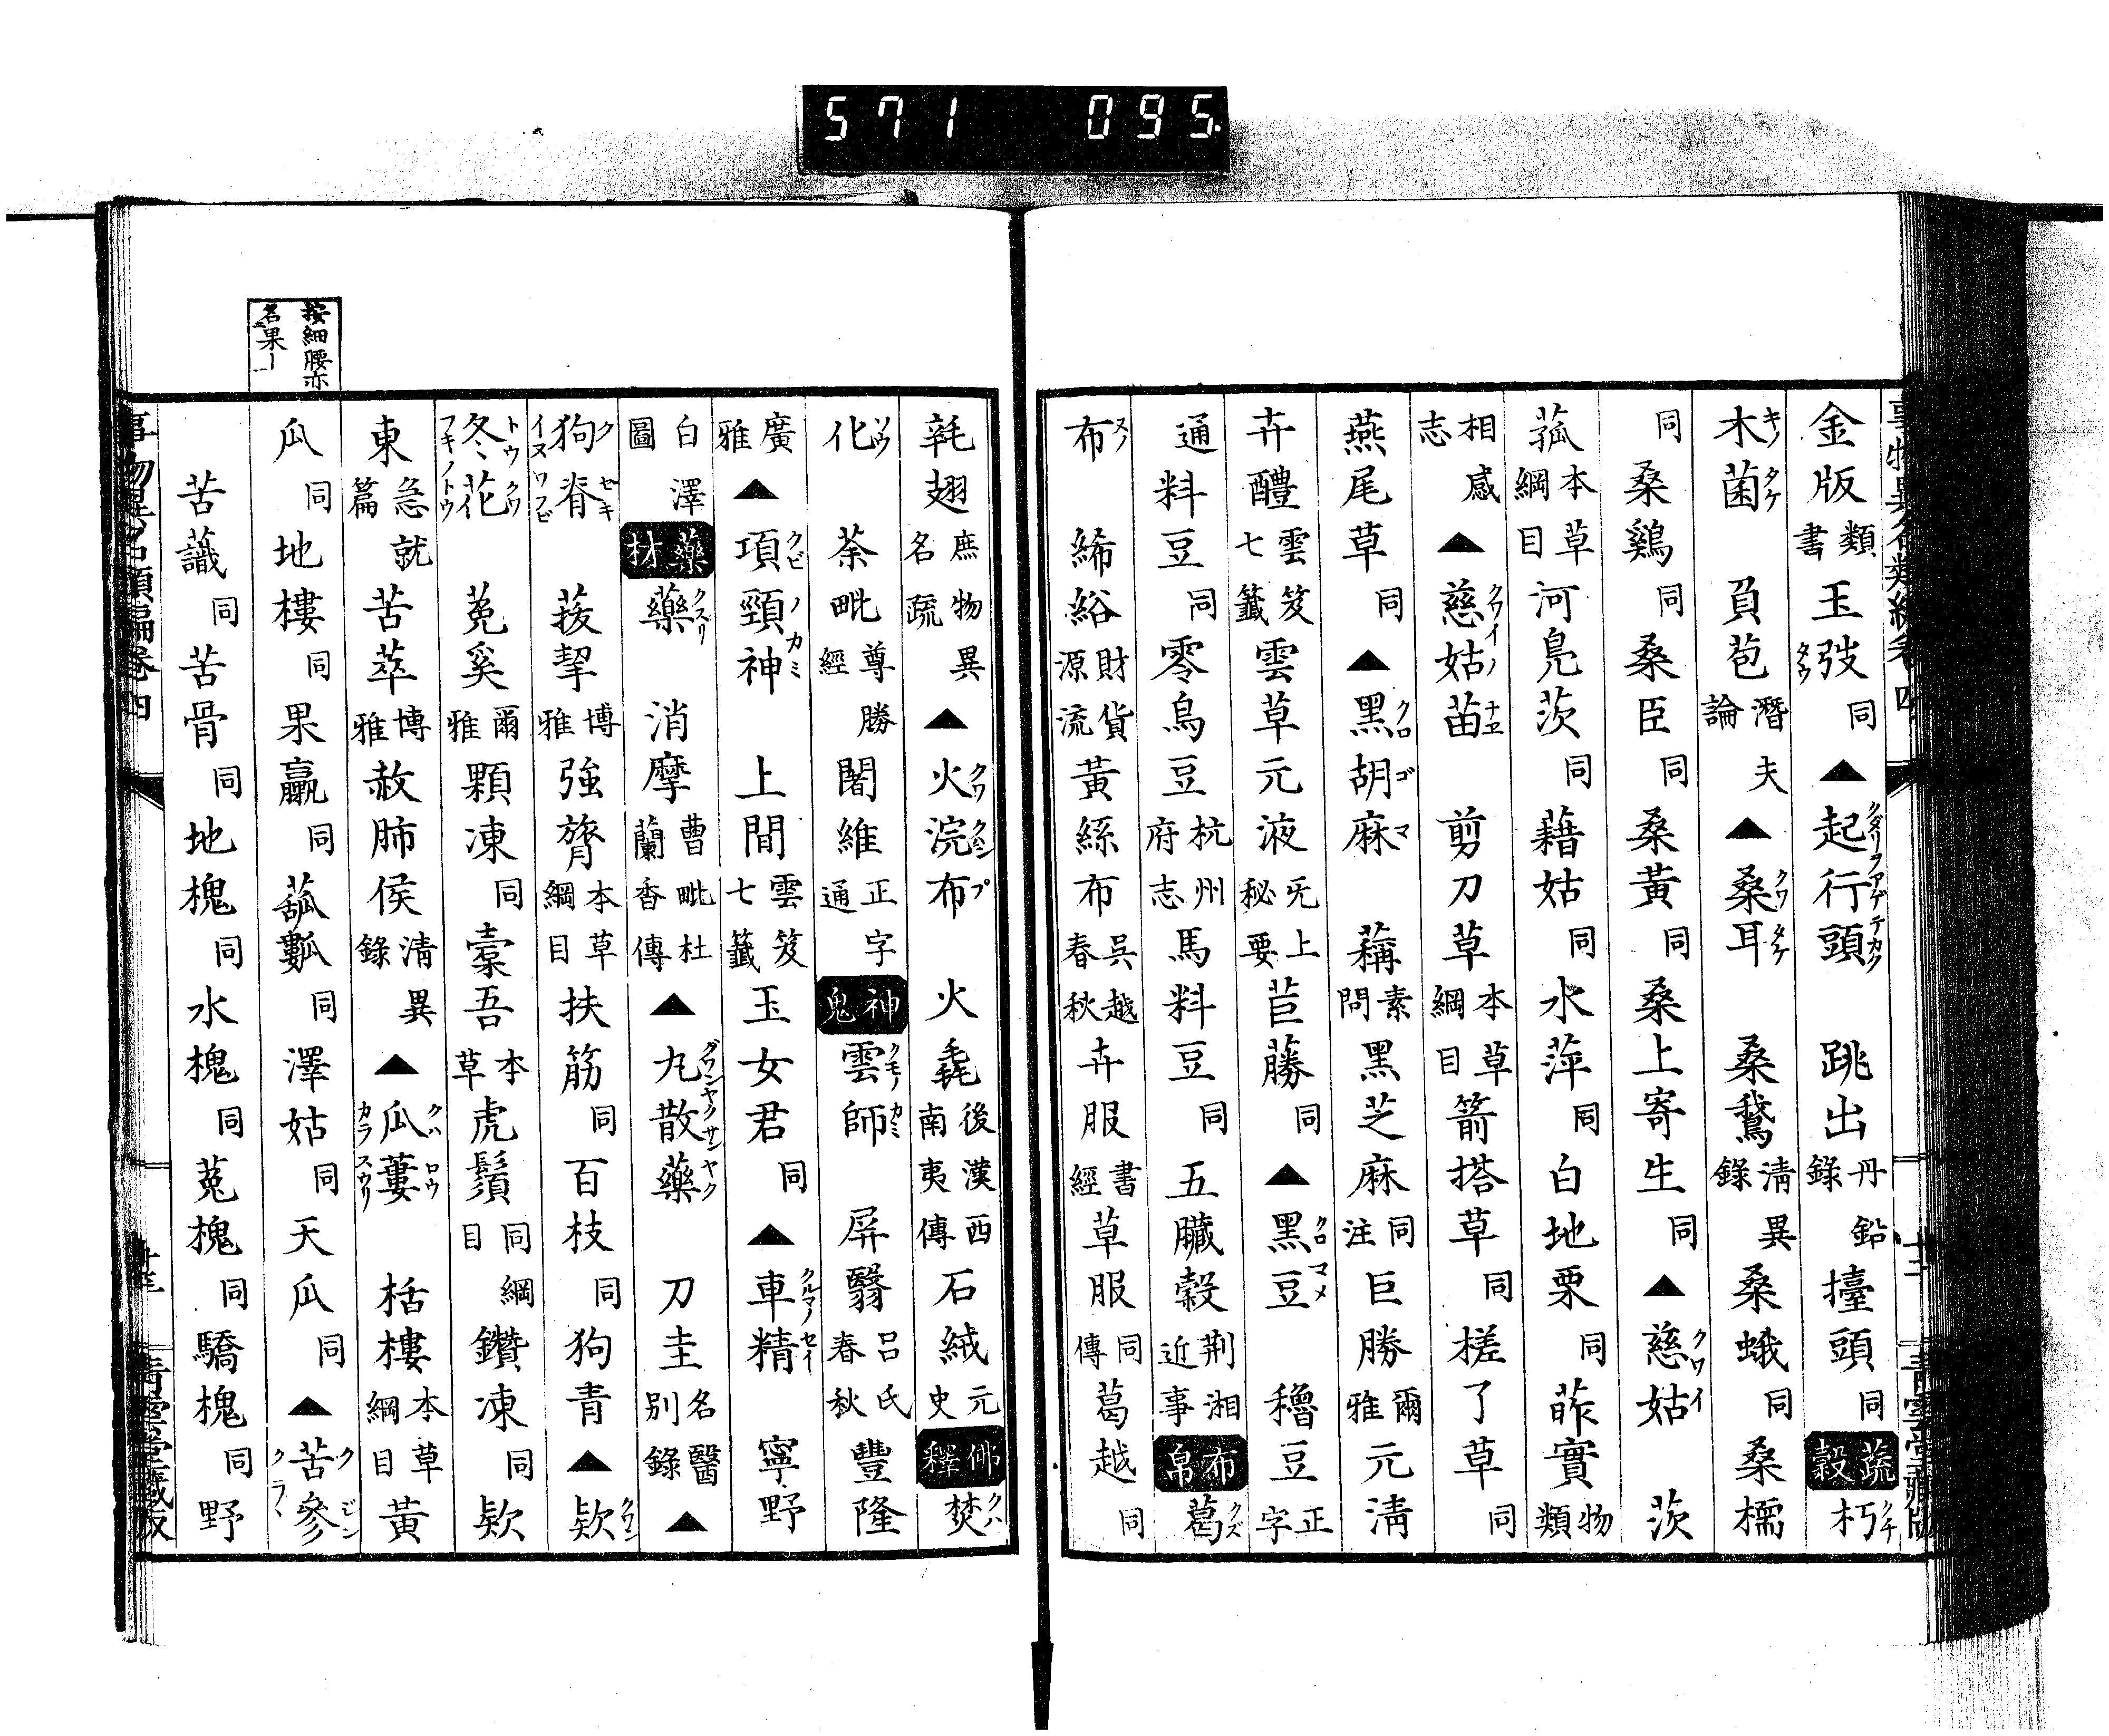 571 095
金版類書玉弢同▲起行頭跳出丹鉛錄擡頭同蔬穀朽
木菌負苞潛夫論▲桑耳桑鵞清異錄桑蛾同桑檽
同桑鷄同桑臣同桑黃同桑上寄生同▲慈姑茨
菰本草綱目河鳧茨同藉姑同水萍同白地栗同苲實物類
相感志▲慈姑苗剪刀草本草綱目箭搭草同槎了草同
燕尾草同▲黑胡麻䕻素問黑芝麻同注巨勝爾雅元清
卉醴雲笈七籤雲草元液旡上秘要苣藤同▲黑豆穭豆正字
通料豆同零烏豆杭州府志馬料豆同五臟穀荆湘近事布帛葛
布絺綌財貨源流黃絲布吳越春秋卉服書經草服同傳葛越同
毦翅庶物異名疏▲火浣布火毳後漢南夷西傳石絨元史佛釋焚
化荼毗尊勝經闍維正字通神鬼雲師屏翳呂氏春秋豐隆
廣雅▲項頸神上間雲笈七籤玉女君同▲車精寧野
白澤圖藥材藥消摩曹毗杜蘭香傳▲丸散藥刀圭名醫別錄▲
狗脊菝挈博雅強膂本草綱目扶筋同百枝同狗青▲欵
冬花菟奚爾雅顆凍同橐吾本草虎鬚同綱目鑽凍同欵
東急就篇苦萃博雅赦肺侯清異錄▲瓜蔞栝樓本草綱目黃
瓜同地樓同果臝同䒷𤬏同澤姑同天瓜同▲苦參
苦蘵同苦骨同地槐同水槐同菟槐同驕槐同野
按細腰亦
名果